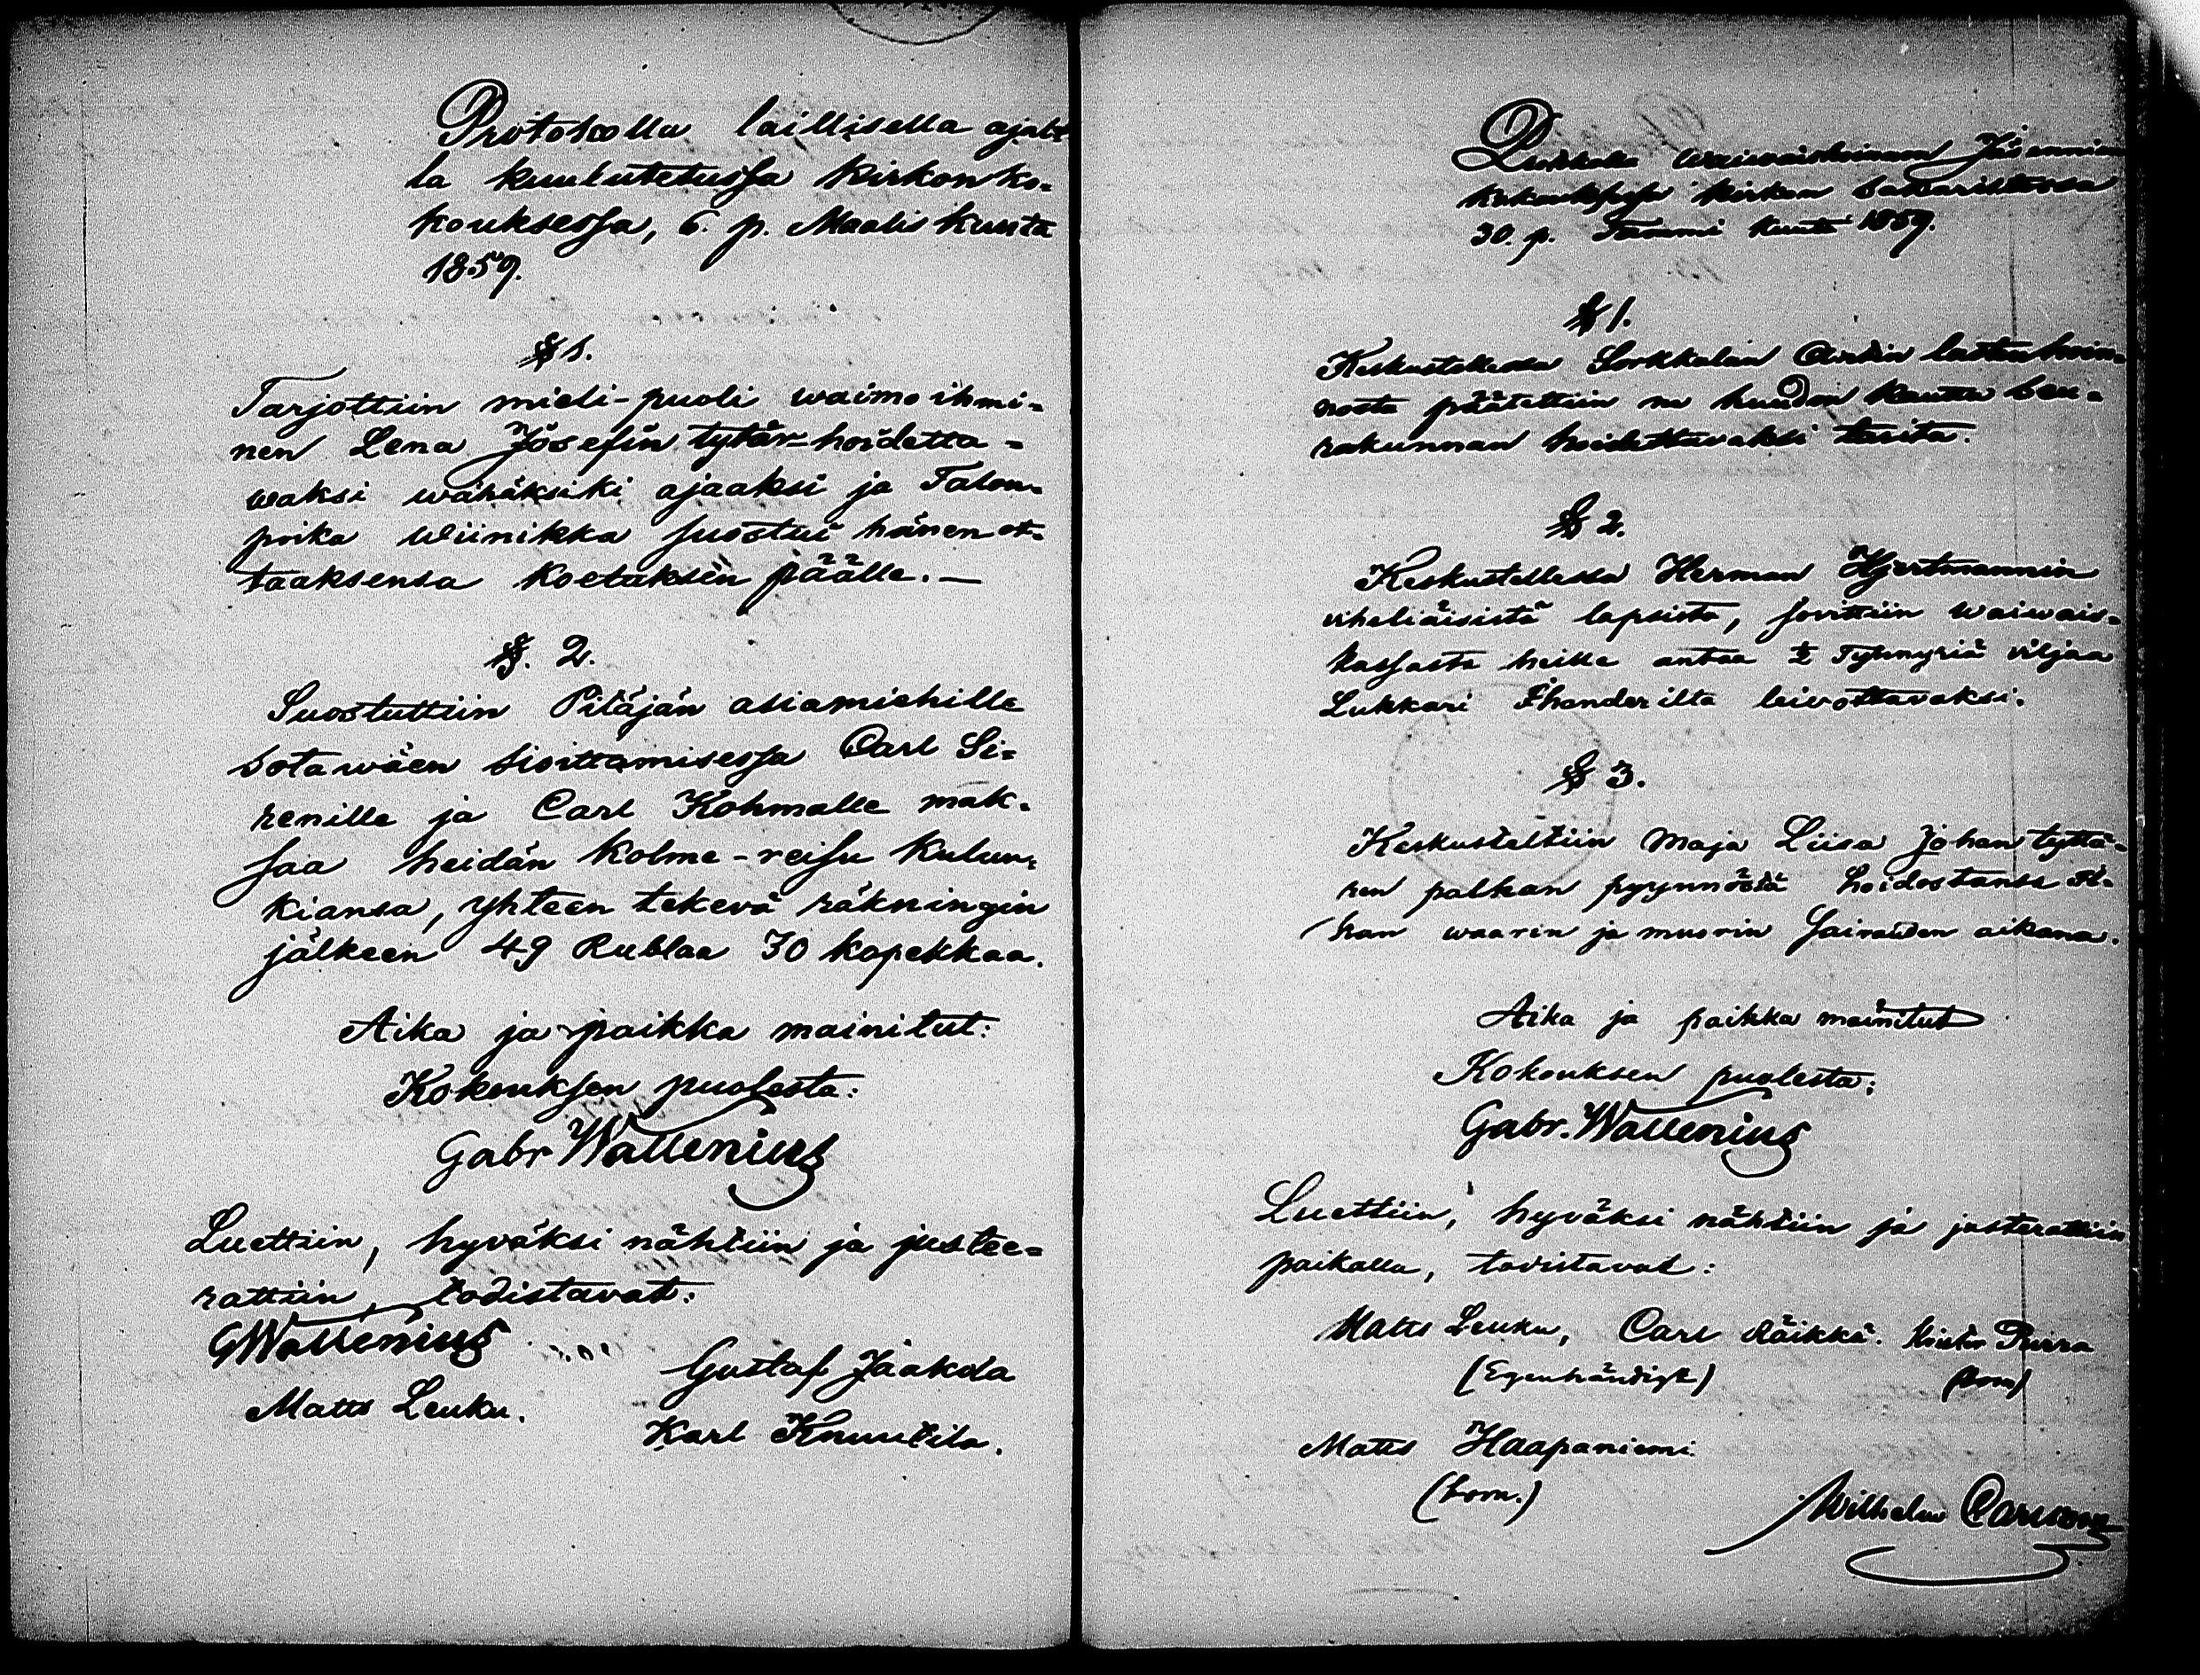 Protokolla laillisella ajal-
la kuulutetussa Kirkonko-
kouksessa, 6. p. Maalis kuuta
1859.
§ 1.
Tarjottiin mieli-puoli waimo ihmi-
nen Lena Josefin tytär hoidetta-
waksi wähäksiki ajaaksi ja Talon-
poika Wiinikka suostui hänen ot-
taaksensa Koetuksen päälle.—
§. 2.
Suostuttiin Pitäjän asiamiehille
sotawäen sioittamisessa Carl Si-
renille ja Carl Kohmalle mak-
saa heidän Kolme-reisu Kulun-
kiansa, yhteen tekevä räkningin
jälkeen 49 Rublaa 30 kopekkaa.
Aika ja paikka mainitut:
Kokouksen puolesta:
Gabr Wallenius
Luettiin, hyväksi nähtiin ja justee-
rattiin, todistavat:
GWallenius
Gustaf Jaakola
Matts Leuku.
Karl Knuutila.
waiwaishoinnon Jäsenmin
kirkon Sakaristossa
30. p. Tammi kuuta 1859.
§ 1.
Keskustellessa Sorkkalan lasten hoin-
nosta päätettiin ne huudon kautta Seu-
rakunnan hoidettavaksi tarita.
§ 2.
Keskustellessa Herman Hjertmannin
viheliäisistä lapsista, sovittiin waiwais-
kassasta heille antaa ½ Tynnyriä viljaa
Lukkari Thanderilta leivottavaksi.
§ 3.
Keskusteltiin Maja Liisa Johan tyttä-
ren palkan pyynnöstä hoidostansa
waarin ja muorin Sairauden aikana.
Aika ja paikka mainitut
Kokouksen puolesta:
Gabr. Wallenius
Luettiin, hyväksi nähtiin ja justerattiin
paikalla, todistavat:
Matts Leuku, Carl Räikkä. Purra
(Egenhändigt) (bom)
Matts Haapaniemi:
(bom.)
Wilhelm Carlson